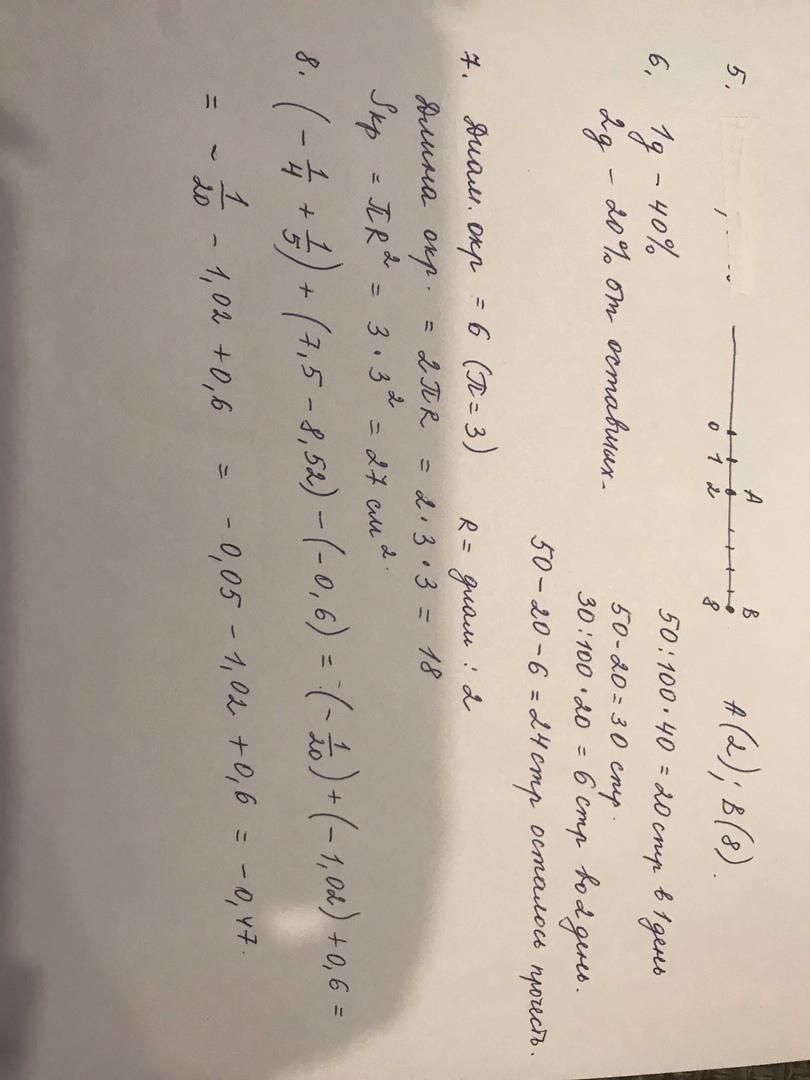 5. A B A(2); B(8).
0 1 2 8
6. 1д – 40% 50:100·40 = 20 стр в 1 день
2д – 20% от оставших- 50-20=30 стр.
30:100·20 = 6 стр во 2 день.
50-20-6 = 24 стр осталось прочесть.
7. Диам. окр = 6 (π=3) R = диам : 2
Длина окр. = 2πR = 2·3·3 = 18
Sкр = πR² = 3·3² = 27 см².
8. (-1/4 + 1/5) + (7,5 - 8,52) - (-0,6) = (-1/20) + (-1,02) + 0,6 =
= -1/20 - 1,02 + 0,6 = -0,05 - 1,02 + 0,6 = -0,47.